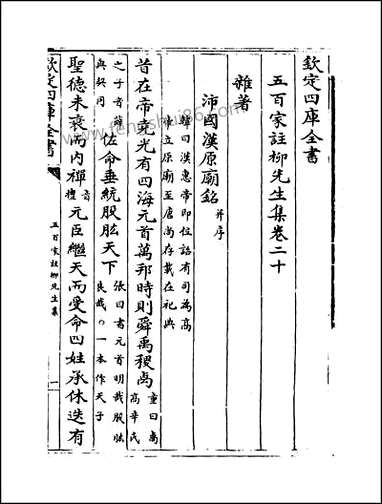 欽定四庫全書
五百家註柳先生集卷二十
雜著
沛國漢原廟銘并序
韓曰漢惠帝即位詔有司為高
帝立原廟至唐尚存載在祀典
昔在帝堯光有四海元首萬邦時則舜禹稷卨
童曰卨
高辛氏
之子音薛
與契同
佐命垂統股肱天下
張曰書元首明哉股肱
良哉〇一本作天子
聖德未衰而內禪
音
禮
元臣繼天而受命四姓承休迭有
欽定四庫全書
五百家註柳先生集
一
www.fengshui86.com